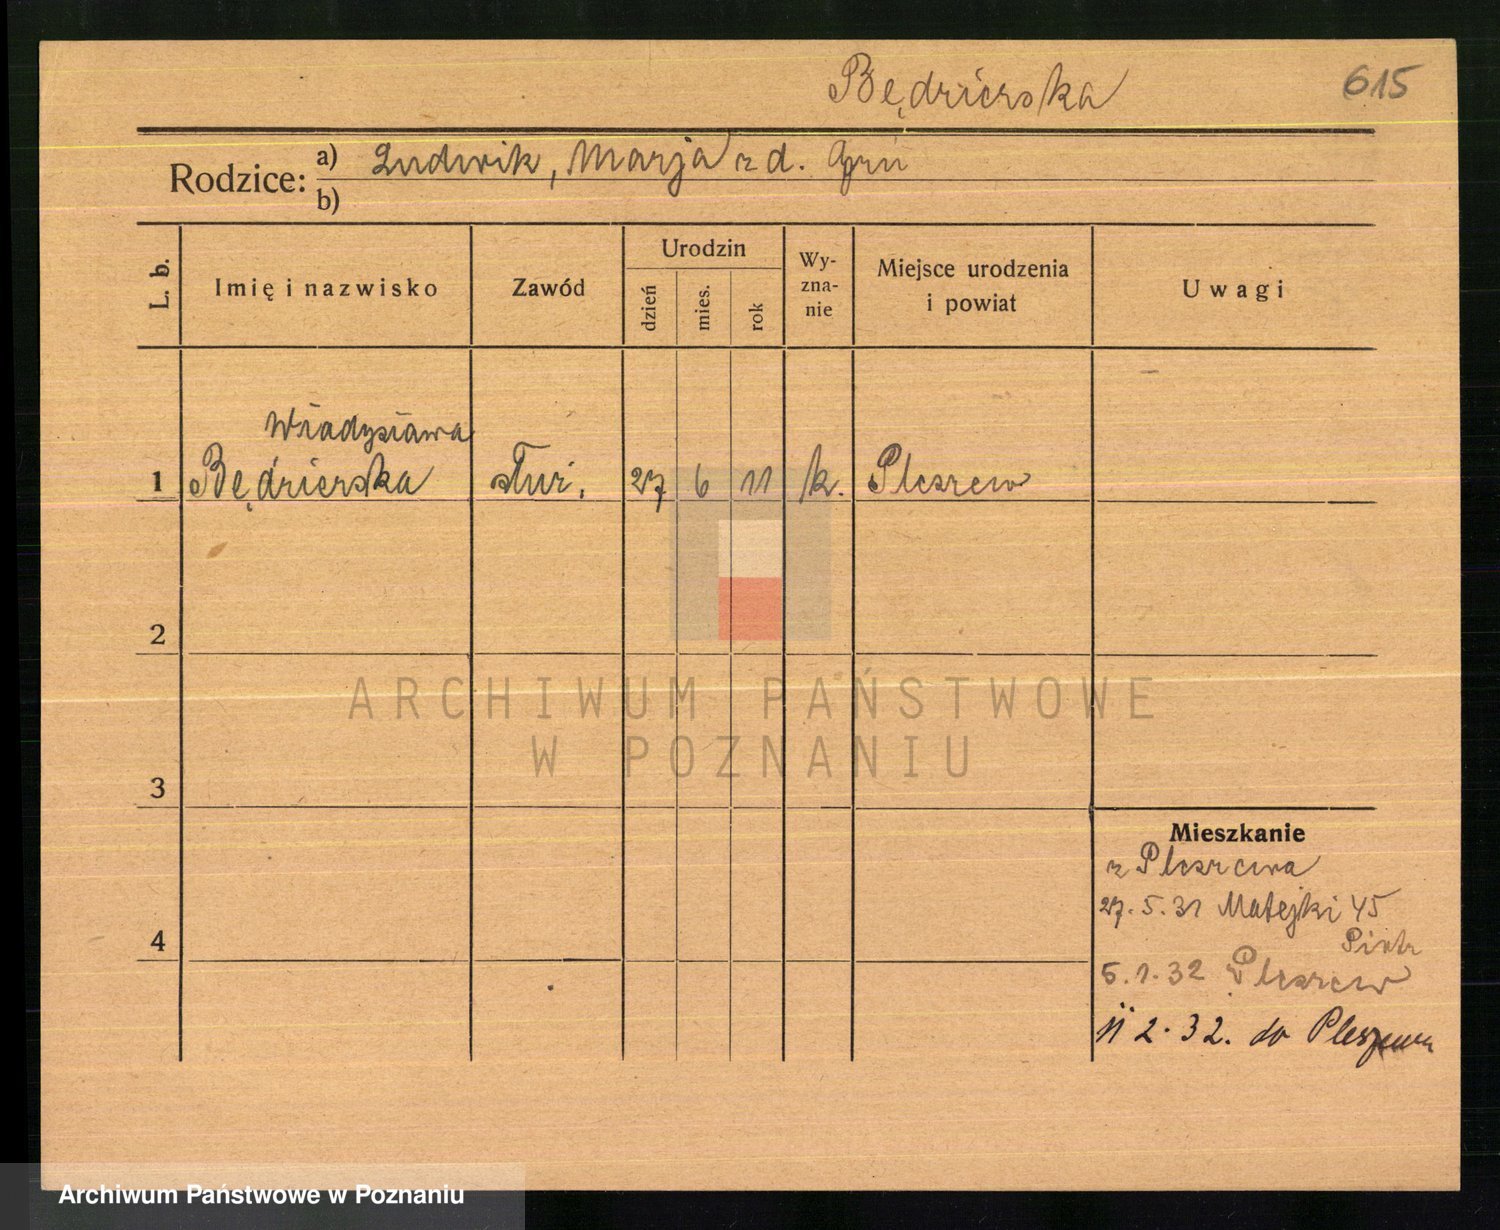 Będzierska
615
Rodzice:
a) Ludwik, Marja z d. Grü
b)
L. b.
Imię i nazwisko
Zawód
Urodzin
dzień
mies.
rok
Wy-
zna-
nie
Miejsce urodzenia
i powiat
Uwagi
Władysława
1 Będzierska służ. 27 6 11 k. Pleszew
2
ARCHIWUM PAŃSTWOWE
W POZNANIU
3
Mieszkanie
z Pleszewa
27.5.31 Matejki 45
4
5.1.32 Pleszew
2.32. do Pleszewa
Archiwum Państwowe w Poznaniu